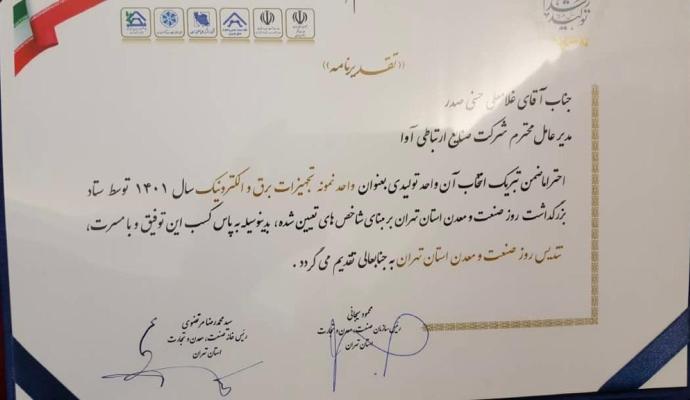 ((تقدیرنامه))
جناب آقای غلامعلی حسنی صدر
مدیرعامل محترم شرکت صنایع ارتباطی آوا
احتراما ضمن تبریک انتخاب آن واحد تولیدی بعنوان واحد نمونه تجهیزات برق و الکترونیک سال ۱۴۰۱ توسط ستاد
بزرگداشت روز صنعت و معدن استان تهران بر مبنای شاخص های تعیین شده، بدینوسیله به پاس کسب این توفیق و با مسرت،
تندیس روز صنعت و معدن استان تهران به جنابعالی تقدیم می گردد.
محمود سیجانی
رئیس سازمان صنعت، معدن و تجارت
استان تهران
سید محمدرضا مرتضوی
رئیس خانه صنعت، معدن و تجارت
استان تهران